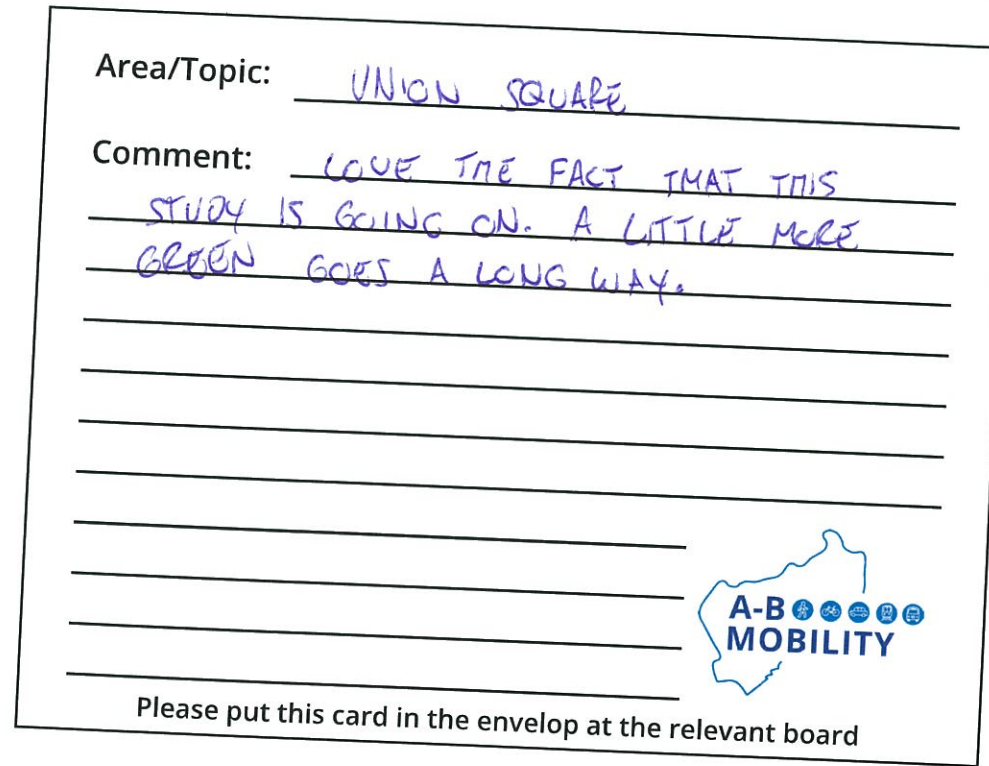 Area/Topic: UNION SQUARE
Comment: LOVE THE FACT THAT THIS
STUDY IS GOING ON. A LITTLE MORE
GREEN GOES A LONG WAY.
A-B
MOBILITY
Please put this card in the envelop at the relevant board